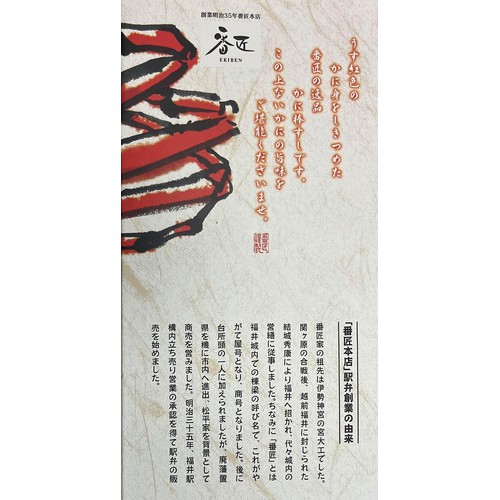 創業明治35年番匠本店
番匠
EKIBEN
うす紅色の
かに身をしきつめた
番匠の逸品
かに棒すしです。
この上ないかにの旨味を
ご堪能くださいませ。
「番匠本店」駅弁創業の由来
番匠家の祖先は伊勢神宮の宮大工でした。
関ヶ原の合戦後、越前福井に封じられた
結城秀康により福井へ招かれ、代々城内の
営繕に従事しました。ちなみに「番匠」とは
福井城内での棟梁の呼び名で、これがや
がて屋号となり、商号となりました。後に
台所頭の一人に加えられましたが、廃藩置
県を機に市内へ進出、松平家を背景として
商売を営みました。明治三十五年、福井駅
構内立ち売り営業の承認を得て駅弁の販
売を始めました。